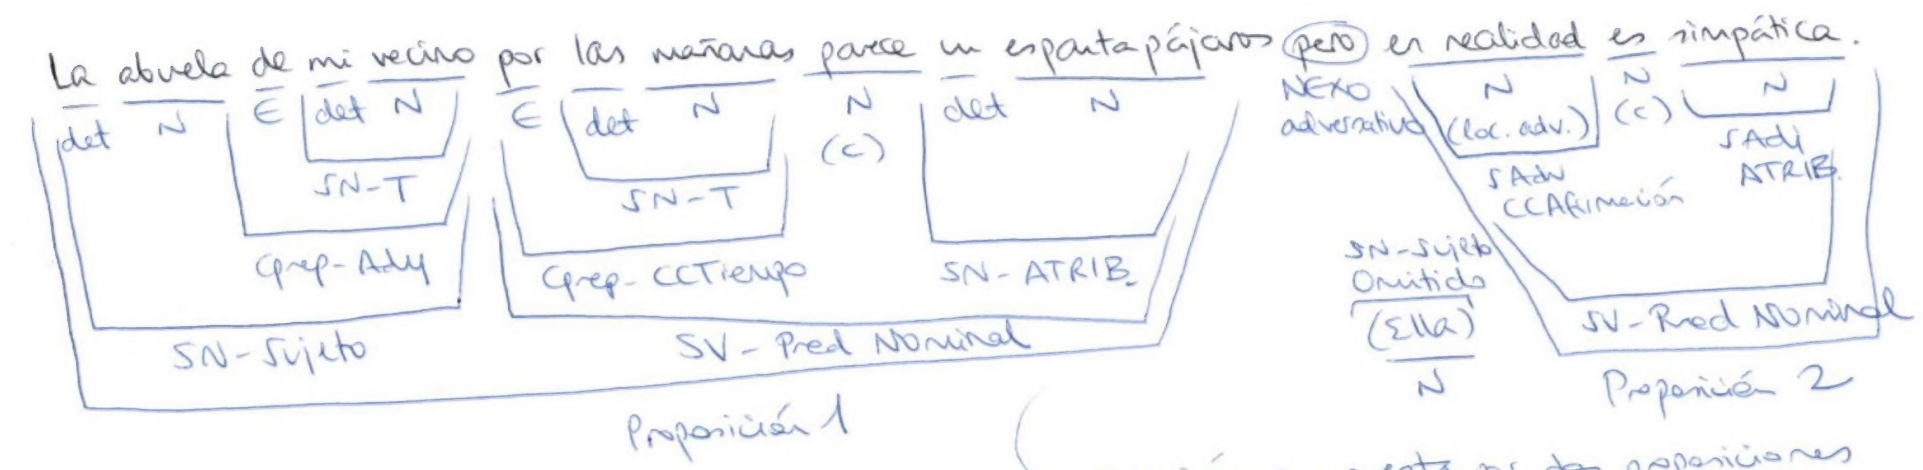 La abuela de mi vecino por las mañanas parece un espantapájaros pero en realidad es simpática.
det N E det N E det N N det N NEXO N N N
(c) adversativo (loc. adv.) (c)
SN-T SN-T SAdv SAdj
CCAfirmación ATRIB.
Cprep-Ady Cprep-CCTiempo SN-ATRIB. SN-Sujeto
Omitido
SN-Sujeto SV-Pred Nominal (Ella) SV-Pred Nominal
N
Proposición 1 Proposición 2
dos proposiciones